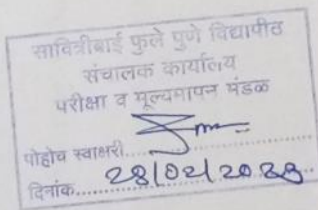 सावित्रीबाई फुले पुणे विद्यापीठ
संचालक कार्यालय
परीक्षा व मूल्यमापन मंडळ
पोहोच स्वाक्षरी..................
दिनांक..................